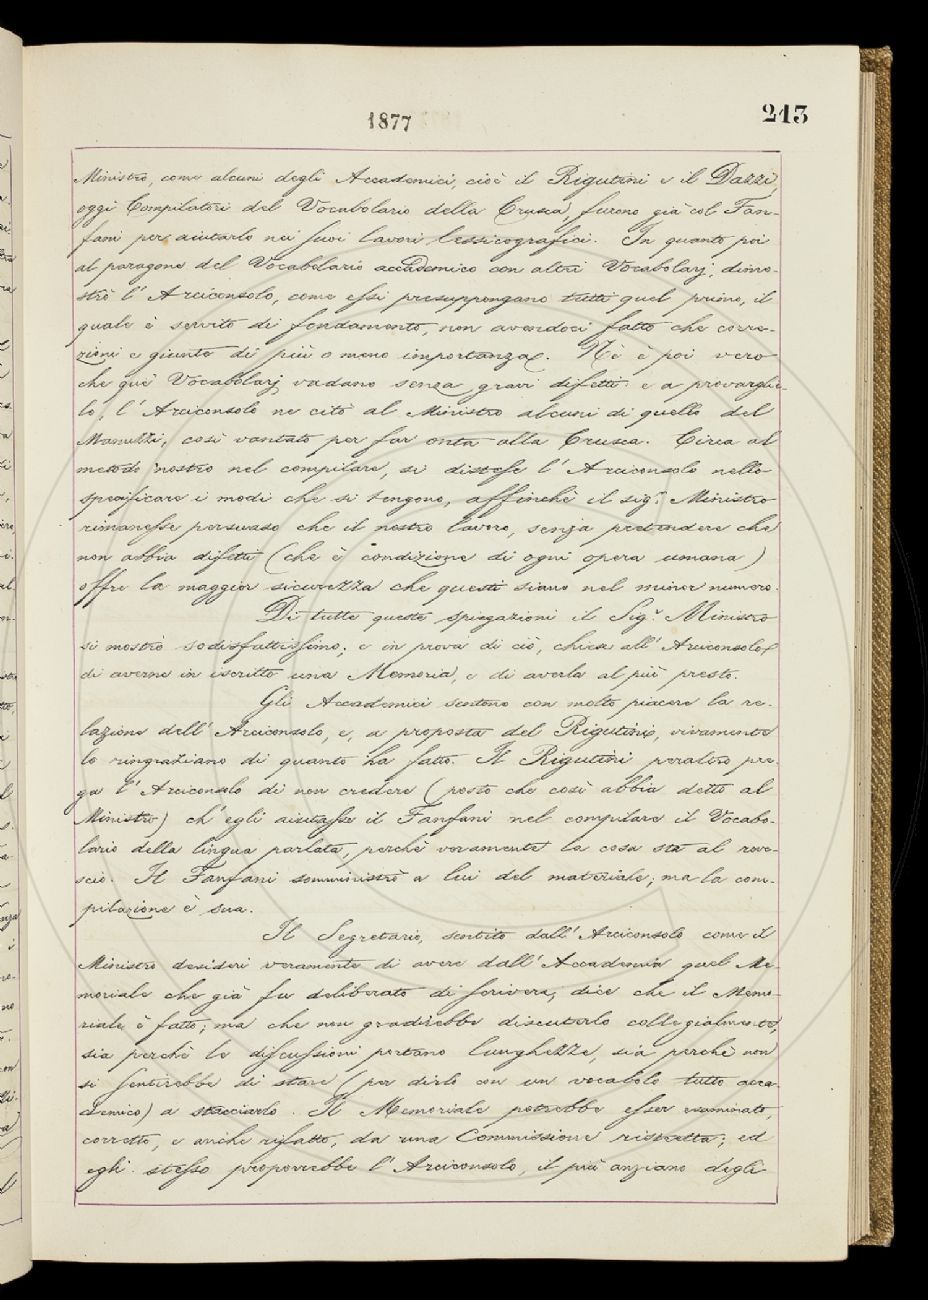 1877
213
Ministro, come alcuni degli Accademici, cioè il Rigutini e il Dazzi,
oggi Compilatori del Vocabolario della Crusca, furono già col Fan-
fani per aiutarlo nei suoi lavori lessicografici. In quanto poi
al paragone del Vocabolario accademico con altri Vocabolarj, dimo-
strò l'Arciconsolo, come essi presuppongano tutti quel primo, il
quale è servito di fondamento, non avendoci fatto che corre-
zioni e giunte di più o meno importanza. Nè è poi vero
che quei Vocabolarj vadano senza gravi difetti: e a provarglie-
lo, l'Arciconsolo ne citò al Ministro alcuni di quello del
Manuzzi, così vantato per far onta alla Crusca. Circa al
metodo nostro nel compilare, si distese l'Arciconsolo nello
specificare i modi che si tengono, affinchè il sig.r Ministro
rimanesse persuaso che il nostro lavoro, senza pretendere che
non abbia difetti (che è condizione di ogni opera umana)
offre la maggior sicurezza che questi siano nel minor numero.
Di tutte queste spiegazioni il Sig.r Ministro
si mostrò sodisfattissimo; e in prova di ciò, chiese all'Arciconsolo
di averne in iscritto una Memoria, e di averla al più presto.
Gli Accademici sentono con molto piacere la re-
lazione dell'Arciconsolo, e, a proposta del Rigutini, vivamente
lo ringraziano di quanto ha fatto. Il Rigutini peraltro pre-
ga l'Arciconsolo di non credere (posto che così abbia detto al
Ministro) ch'egli aiutasse il Fanfani nel compilare il Vocabo-
lario della lingua parlata, perchè veramente la cosa sta al rove-
scio. Il Fanfani somministrò a lui del materiale; ma la com-
pilazione è sua.
Il Segretario, sentito dall'Arciconsolo come il
Ministro desideri veramente di avere dall'Accademia quel Me-
moriale che già fu deliberato di scrivere, dice che il Memo-
riale è fatto; ma che non gradirebbe discuterlo collegialmente,
sia perchè le discussioni portano lunghezze, sia perchè non
si sentirebbe di stare (per dirlo con un vocabolo tutto acca-
demico) a stacciarlo. Il Memoriale potrebbe esser esaminato,
corretto, e anche rifatto, da una Commissione ristretta; ed
egli stesso proporrebbe l'Arciconsolo, il più anziano degli